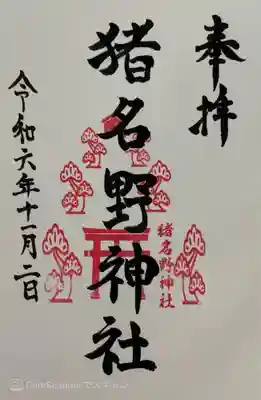 奉拝
猪名野神社
猪名野神社
令和六年十一月二日